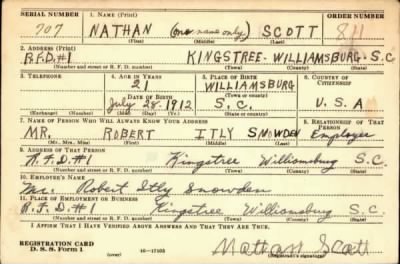 SERIAL NUMBER 1. NAME (Print) ORDER NUMBER
707 NATHAN (one name only) SCOTT 811
(First) (Middle) (Last)
2. ADDRESS (Print)
R.F.D.#1 KINGSTREE WILLIAMSBURG S.C.
(Number and street or R. F. D. number) (Town) (County) (State)
3. TELEPHONE 4. AGE IN YEARS 5. PLACE OF BIRTH 6. COUNTRY OF CITIZENSHIP
21 WILLIAMSBURG
DATE OF BIRTH (Town or county)
July 28 1912 S.C. U.S.A
(Exchange) (Number) (Mo.) (Day) (Yr.) (State or country)
7. NAME OF PERSON WHO WILL ALWAYS KNOW YOUR ADDRESS 8. RELATIONSHIP OF THAT PERSON
MR. ROBERT ITLY SNOWDEN Employer
(Mr., Mrs., Miss) (First) (Middle) (Last)
9. ADDRESS OF THAT PERSON
R.F.D#1 Kingstree Williamsburg S.C.
(Number and street or R. F. D. number) (Town) (County) (State)
10. EMPLOYER'S NAME
Mr. Robert Itly Snowden
11. PLACE OF EMPLOYMENT OR BUSINESS
R.F.D#1 Kingstree Williamsburg S.C.
(Number and street or R. F. D. number) (Town) (County) (State)
I AFFIRM THAT I HAVE VERIFIED ABOVE ANSWERS AND THAT THEY ARE TRUE.
REGISTRATION CARD
D. S. S. FORM 1 (over) 16—17105 Nathan Scott
(Registrant's signature)